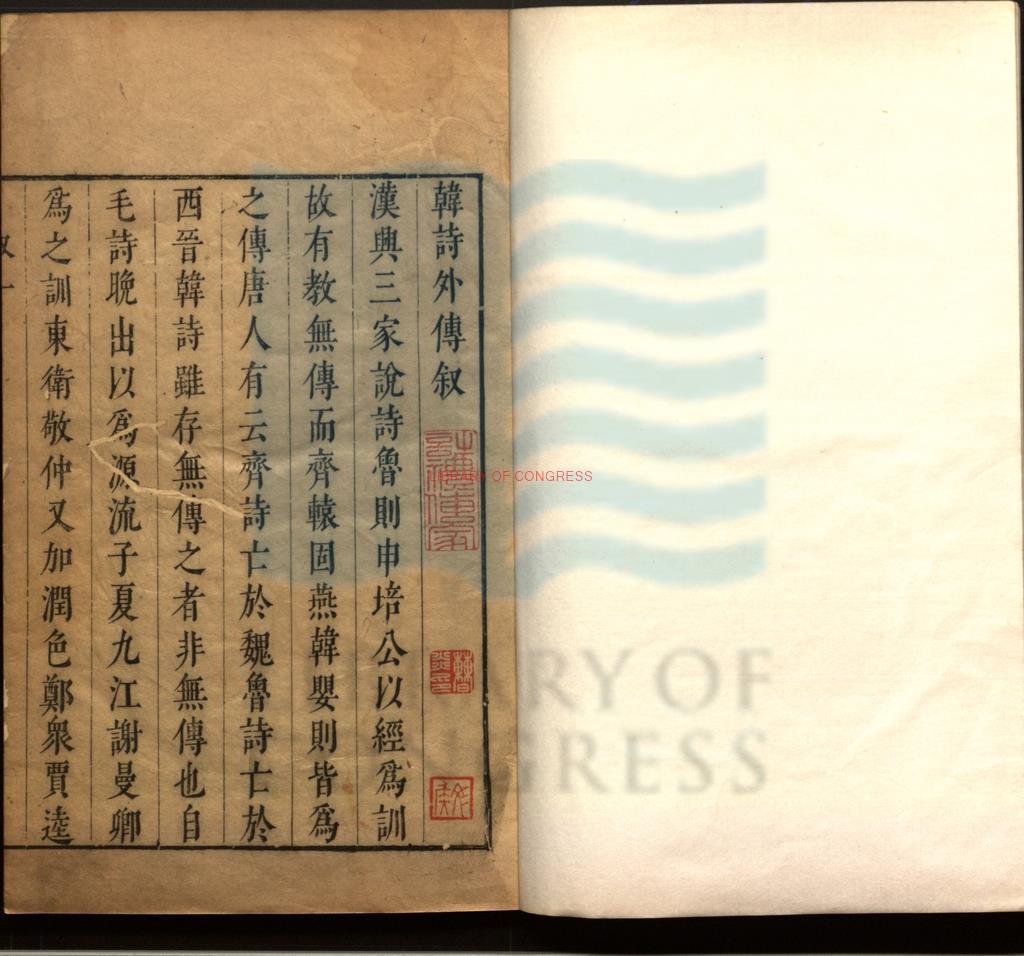 韓詩外傳叙
漢興三家說詩魯則申培公以經爲訓
故有教無傳而齊轅固燕韓嬰則皆爲
之傳唐人有云齊詩亡於魏魯詩亡於
西晉韓詩雖存無傳之者非無傳也自
毛詩晚出以爲源流子夏九江謝曼卿
爲之訓東衛敬仲又加潤色鄭衆賈逵
LIBRARY OF CONGRESS
RY OF
GRESS